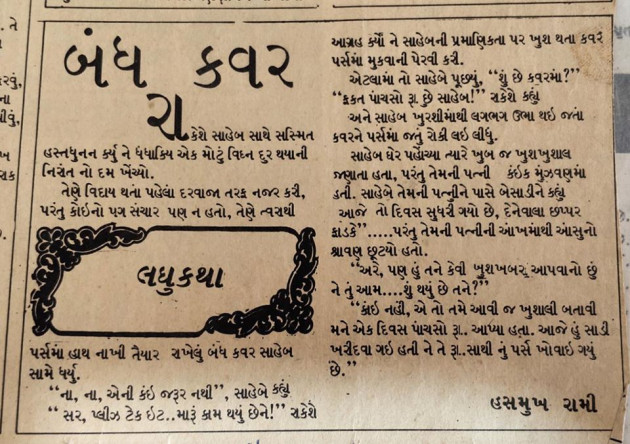 બંધ કવર
રાકેશે સાહેબ સાથે સસ્મિત
હસ્તધુનન કર્યુ ને ધંધાકિય એક મોટું વિઘ્ન દુર થયાની
નિરાંત નો દમ ખેંચ્યો.
તેણે વિદાય થતા પહેલાં દરવાજા તરફ નજર કરી,
પરંતુ કોઇનો પગ સંચાર પણ ન હતો, તેણે ત્વરાથી
લઘુકથા
પર્સમાં હાથ નાખી તૈયાર રાખેલું બંધ કવર સાહેબ
સામે ધર્યુ.
“ના, ના, એની કંઇ જરૂર નથી”, સાહેબે કહ્યુ
“ સર, પ્લીઝ ટેક ઇટ..મારૂં કામ થયું છેને!” રાકેશે
આગ્રહ કર્યો ને સાહેબની પ્રમાણિકતા પર ખુશ થતા કવર
પર્સમાં મુકવાની પેરવી કરી.
એટલામાં તો સાહેબે પૂછ્યું, “શું છે કવરમાં?”
“ફકત પાંચસો રૂા. છે સાહેબ!” રાકેશે કહ્યું
અને સાહેબ ખુરશીમાંથી લગભગ ઉભા થઇ જતાં
કવરને પર્સમાં જતું રોકી લઇ લીધુ.
સાહેબ ઘેર પહોંચ્યા ત્યારે ખુબ જ ખુશખુશાલ
જણાતા હતા, પરંતુ તેમની પત્ની કંઇક મુંઝવણમાં
હતી. સાહેબે તેમની પત્નીને પાસે બેસાડીને કહ્યું
આજે તો દિવસ સુધરી ગયો છે, દેનેવાલા છપ્પર
ફાડકે”.....પરંતુ તેમની પત્નીની આંખમાંથી આંસુનો
શ્રાવણ છૂટયો હતો.
“અરે, પણ હું તને કેવી ખુશખબર આપવાનો છું
ને તું આમ....શું થયું છે તને?”
“કાંઇ નહીં, એ તો તમે આવી જ ખુશાલી બતાવી
મને એક દિવસ પાંચસો રૂા. આપ્યા હતા. આજે હું સાડી
ખરીદવા ગઇ હતી ને તે રૂા..સાથી નું પર્સ ખોવાઇ ગયું
છે.”
હસમુખ રામી